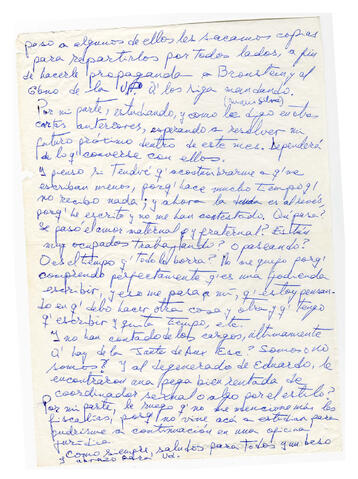 paso a algunos de ellos les sacamos copias
para repartirlos por todos lados, a fin
de hacerle propaganda a Bronstein y al
de la q' los siga mandando.
Por mi parte, estudiando, y como les digo en otras
cartas anteriores, esperando a resolver mi
futuro próximo dentro de este mes. Dependerá
de lo q' converse con ellos.
Y pienso si tendré q' acostumbrarme a q' me
escriban menos, porq' hace mucho tiempo q'
no recibo nada; y ahora la es al revés,
porq' he escrito y no me han contestado. Qué pasa?
Se pasó el amor maternal y fraternal? Están
muy ocupados trabajando? O paseando?
O es el tiempo q' todo lo borra? No me quejo porq'
comprendo perfectamente q' es una jodienda
escribir, y eso me pasa a mí, q' estoy pensan-
do en q' debo hacer otra cosa, y otra y q' tengo
q' escribir y quita tiempo, etc.
Y no han contado de los cargos, últimamente
Q' hay de la Junta de Aux Esc? Somos o no
somos? Y al degenerado de Eduardo, le
encontraron una pega bien rentada de
coordinador sexual o algo por el estilo?
Por mi parte, le ruego q' no me mencione más las
fiscalías, porq' no vine acá a estudiar para
pudrirme a continuación en una oficina
jurídica.
Como siempre, saludos para todos y un beso
y para Ud.